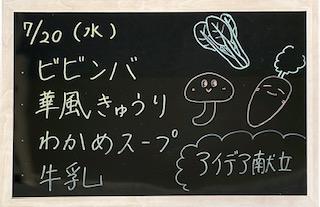 7/20(水)
ビビンバ
華風きゅうり
わかめスープ
牛乳
アイデア献立